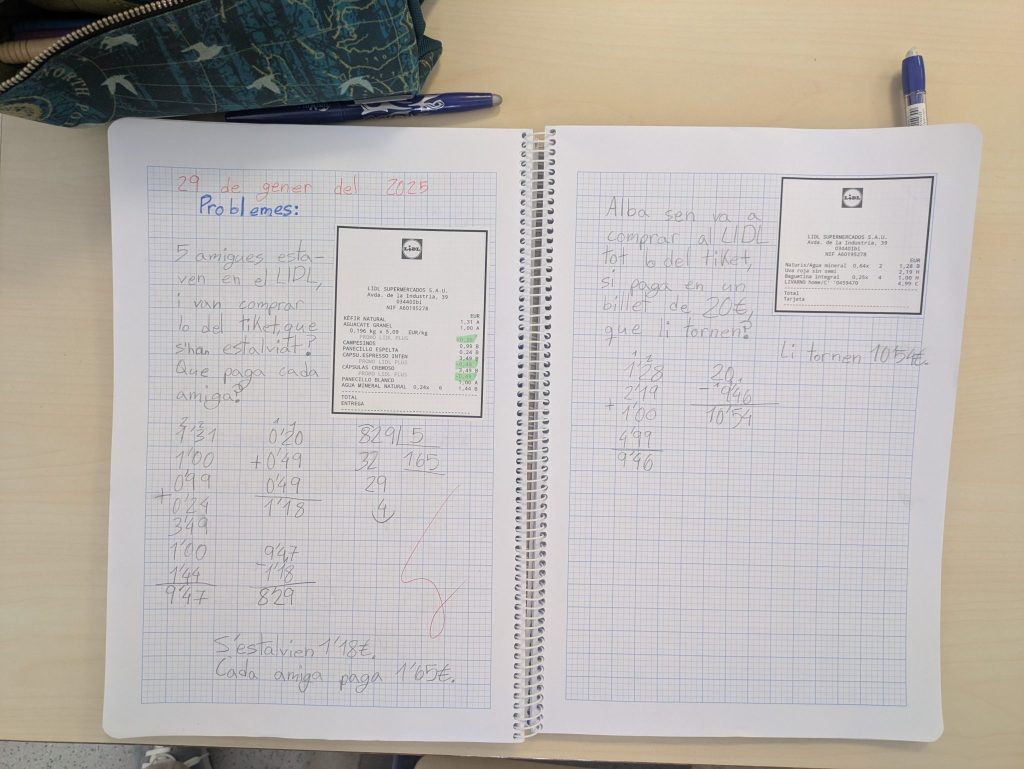 29 de gener del 2025
Problemes:
5 amigues esta-
ven en el LIDL,
i van comprar
lo del tiket, que
s'han estalviat?
Que paga cada
amiga?
LIDL
LIDL SUPERMERCADOS S.A.U.
Avda. de la Industria, 39
03440Ibi
NIF A60195278
EUR
KÉFIR NATURAL 1,31 A
AGUACATE GRANEL 1,00 A
0,196 kg x 5,09 EUR/kg
PROMO LIDL PLUS -0,20
CAMPESINOS 0,99 B
PANECILLO ESPELTA 0,24 B
CAPSU.ESPRESSO INTEN 3,49 B
PROMO LIDL PLUS -0,49
CÁPSULAS CREMOSO 3,49 B
PROMO LIDL PLUS -0,49
PANECILLO BLANCO 1,00 A
AGUA MINERAL NATURAL 0,24x 6 1,44 B
TOTAL
ENTREGA
1'31
1'00
0'99
+ 0'24
3'49
1'00
1'44
9'47
0'20
+0'49
0'49
1'18
9'47
-1'18
8'29
829 5
32 165
29
4
S'estalvien 1'18€.
Cada amiga paga 1'65€.
Alba sen va a
comprar al LIDL
tot lo del tiket,
si paga en un
billet de 20€,
que li tornen?
LIDL
LIDL SUPERMERCADOS S.A.U.
Avda. de la Industria, 39
03440Ibi
NIF A60195278
EUR
Naturis/Agua mineral 0,64x 2 1,28 B
Uva roja sin semi 2,19 H
Baguetina Integral 0,25x 4 1,00 H
LIVARNO home/C' '0459470 4,99 C
Total
Tarjeta
Li tornen 10'54€.
1'28
2'19
+ 1'00
4'99
9'46
20
- 9'46
10'54
NORTH